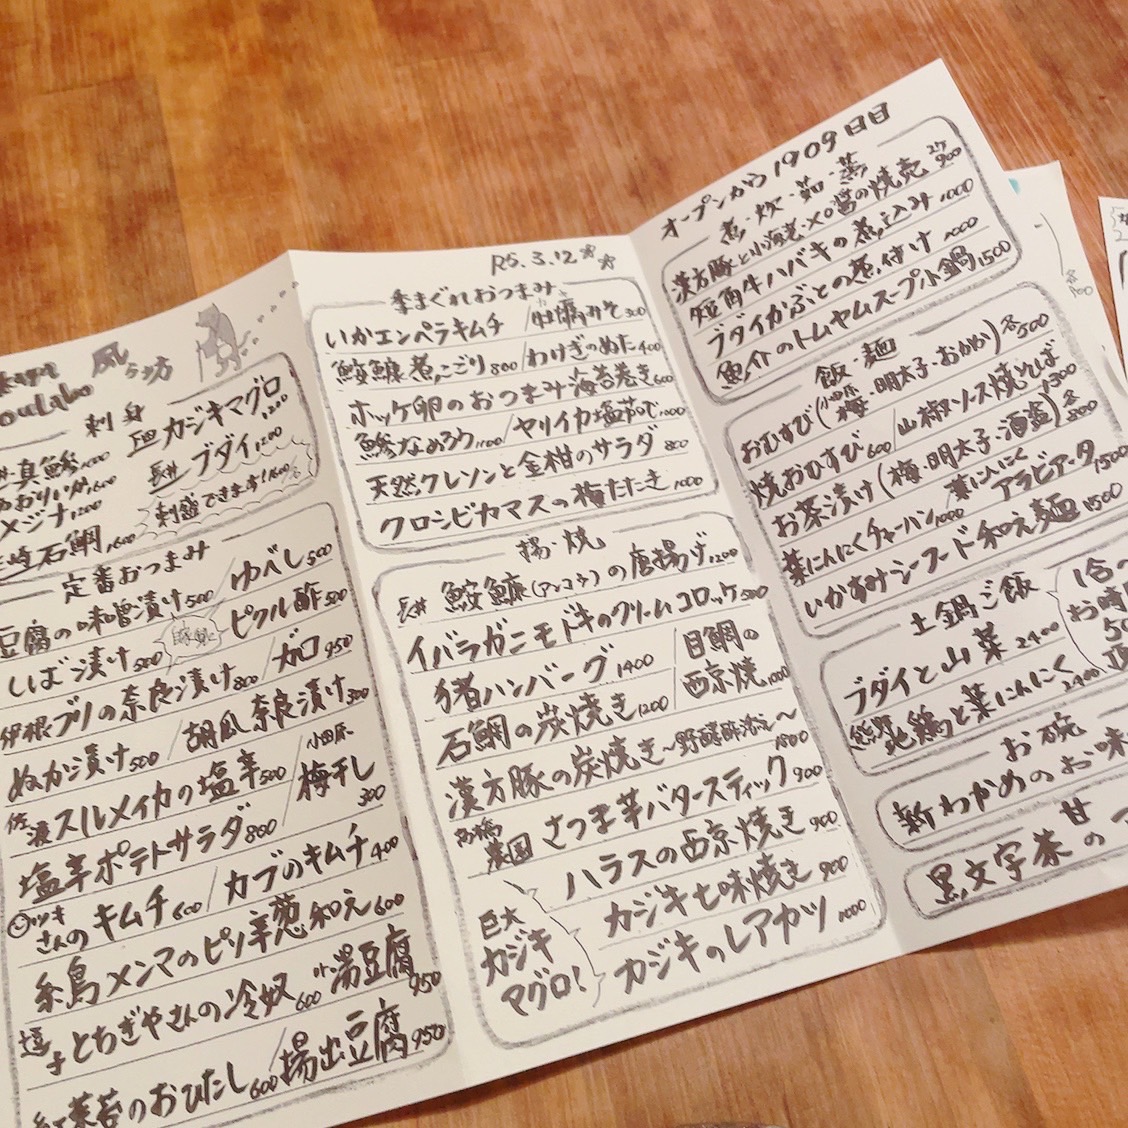 風ら坊
刺身
真鯵1000
カジキマグロ1200
あおりいか1600
長井ブダイ1200
メジナ1200
刺盛できます!1600〜
石鯛1600
定番おつまみ
豆腐の味噌漬け500/ゆべし500
しば漬け500
ピクル酢500
伊根ブリの奈良漬け800/ガロ950
ぬか漬け500/胡瓜奈良漬け300
佐渡スルメイカの塩辛500/小田原梅干し300
塩辛ポテトサラダ800
さんのキムチ600/カブのキムチ400
糸島メンマのピリ辛葱和え600
逗子とちぎやさんの冷奴600/湯豆腐950
紅菜苔のおひたし600/揚出豆腐950
R5.3.12
季まぐれおつまみ
いかエンペラキムチ/牡蠣みそ300
鮟鱇煮こごり800/わけぎのぬた400
ホッケ卵のおつまみ海苔巻き600
鯵なめろう1100/ヤリイカ塩茹で1000
天然クレソンと金柑のサラダ800
クロシビカマスの梅たたき1000
揚・焼
長井鮟鱇(アンコウ)の唐揚げ1200
イバラガニモドキのクリームコロッケ500
猪ハンバーグ1400/目鯛の西京焼1000
石鯛の炭焼き1200
漢方豚の炭焼き〜野醸酢添え〜1800
高橋農園さつま芋バタースティック900
ハラスの西京焼き900
カジキ七味焼き900
カジキのレアカツ1000
巨大カジキマグロ!
オープンから1909日目
煮・炊・茹・蒸
漢方豚と小海老・XO醤の焼売2ケ900
短角牛ハバキの煮込み1000
ブダイかぶとの煮付け1000
魚介のトムヤムスープ小鍋1500
飯・麺
おむすび(小田原梅・明太子・おかか)各500
焼おむすび600/山椒ソース焼そば1300
お茶漬け(梅・明太子・酒盗)各800
葉にんにくチャーハン1000/葉にんにくアラビアータ1500
いかすみシーフード和え麺1500
土鍋ご飯
ブダイと山菜2400
地鶏と葉にんにく2400
1合の
お時間
50
お碗
新わかめのお味
甘
黒文字茶の